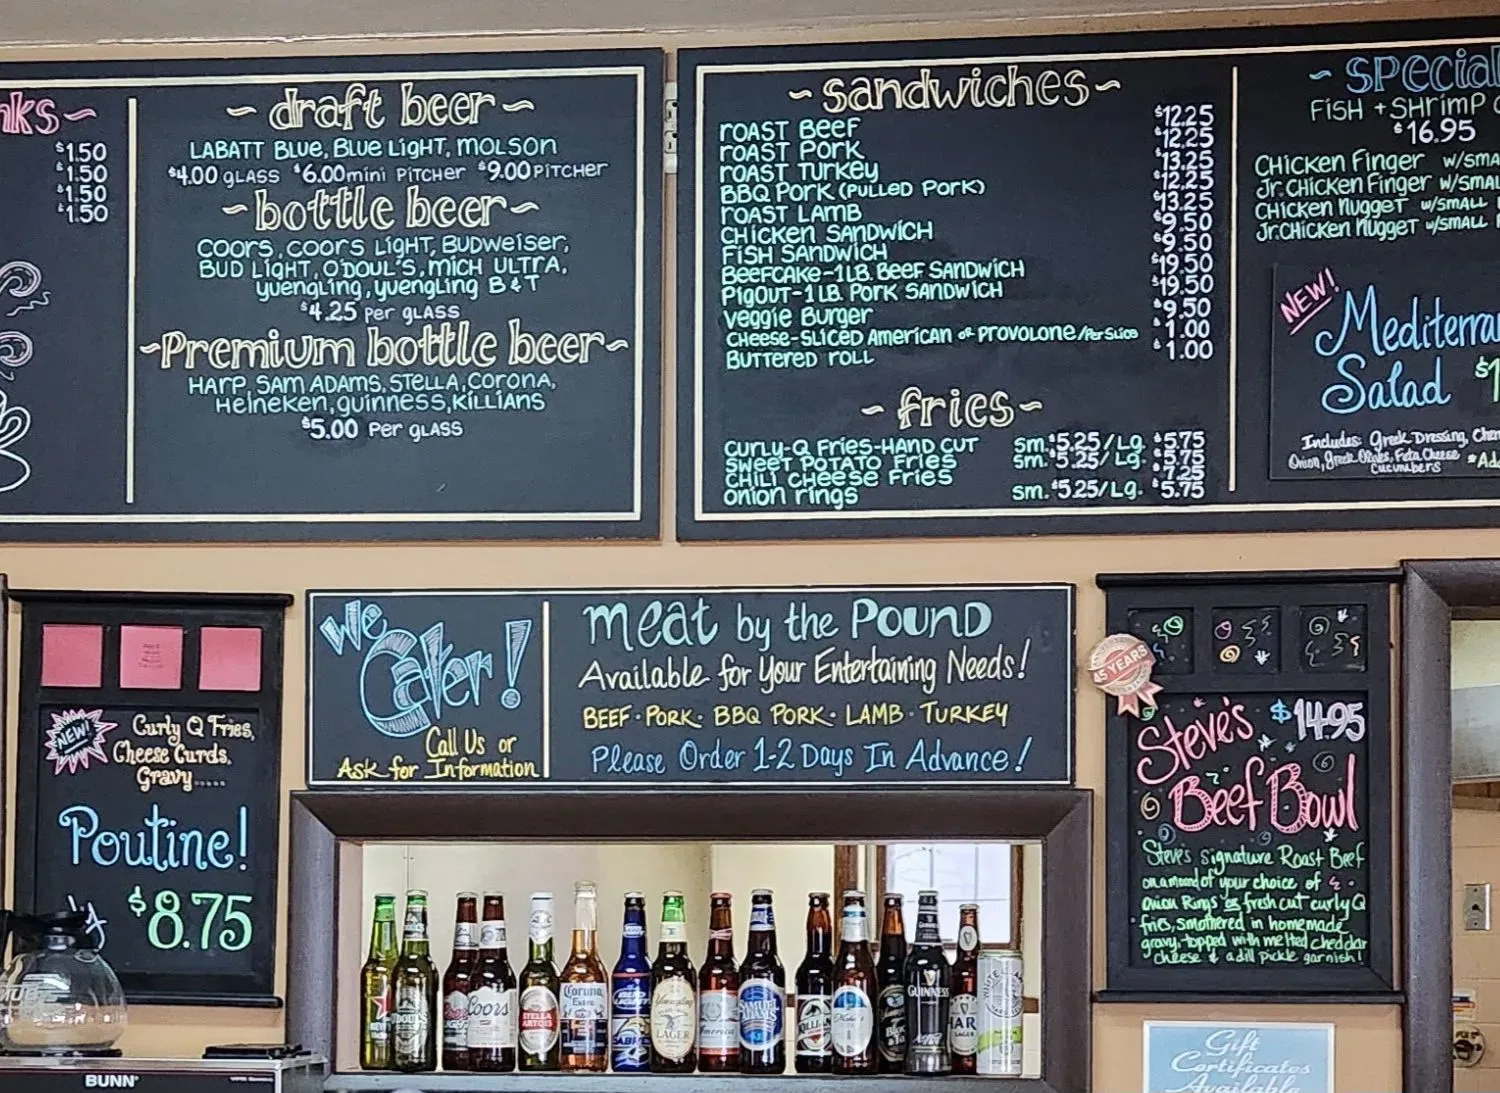 ~draft beer~
LABATT BLUE, BLUE LIGHT, MOLSON
$4.00 GLASS $6.00 mini PITCHER $9.00 PITCHER
~bottle beer~
COORS, COORS LIGHT, BUDWEISER,
BUD LIGHT, O'DOUL'S, MICH ULTRA,
YUENGLING, YUENGLING B & T
$4.25 Per GLASS
~Premium bottle beer~
HARP, SAM ADAMS, STELLA, CORONA,
HEINEKEN, GUINNESS, KILLIANS
$5.00 Per GLASS
$1.50
$1.50
$1.50
$1.50
~sandwiches~
ROAST BEEF $12.25
ROAST PORK $12.25
ROAST TURKEY $13.25
BBQ PORK (PULLED PORK) $12.25
ROAST LAMB $13.25
CHICKEN SANDWICH $9.50
FISH SANDWICH $9.50
BEEFCAKE-1LB. BEEF SANDWICH $19.50
PIGOUT-1LB. PORK SANDWICH $19.50
VEGGIE BURGER $9.50
CHEESE-SLICED AMERICAN or PROVOLONE/Per Slice $1.00
BUTTERED ROLL $1.00
~fries~
CURLY-Q FRIES-HAND CUT Sm. $5.25/Lg. $5.75
SWEET POTATO FRIES Sm. $5.25/Lg. $5.75
CHILI CHEESE FRIES $7.25
ONION RINGS Sm. $5.25/Lg. $5.75
FISH + SHRIMP
$16.95
CHICKEN FINGER
Jr. CHICKEN FINGER
CHICKEN NUGGET W/SMALL
Jr. CHICKEN NUGGET W/SMALL
NEW!
Salad
Includes: Greek Dressing,
Onion, Greek Olives, Feta Cheese
Cucumbers
NEW!
Curly Q Fries,
Cheese Curds,
Gravy.....
Poutine!
$8.75
We
Cater!
Call Us or
Ask for Information
Meat by the POUND
Available for Your Entertaining Needs!
BEEF · PORK · BBQ PORK · LAMB · TURKEY
Please Order 1-2 Days In Advance!
45 YEARS
Steve's $14.95
Beef Bowl
Steve's signature Roast Beef
on a mound of your choice of
onion Rings or fresh cut curly Q
fries, smothered in homemade
gravy, topped with melted cheddar
cheese & a dill pickle garnish!
Coors
STELLA
ARTOIS
Corona
Extra
BUD
LIGHT
SABRES
Yuengling
LAGER
America
SAMUEL
ADAMS
GUINNESS
BUNN
Gift
Certificates
Available